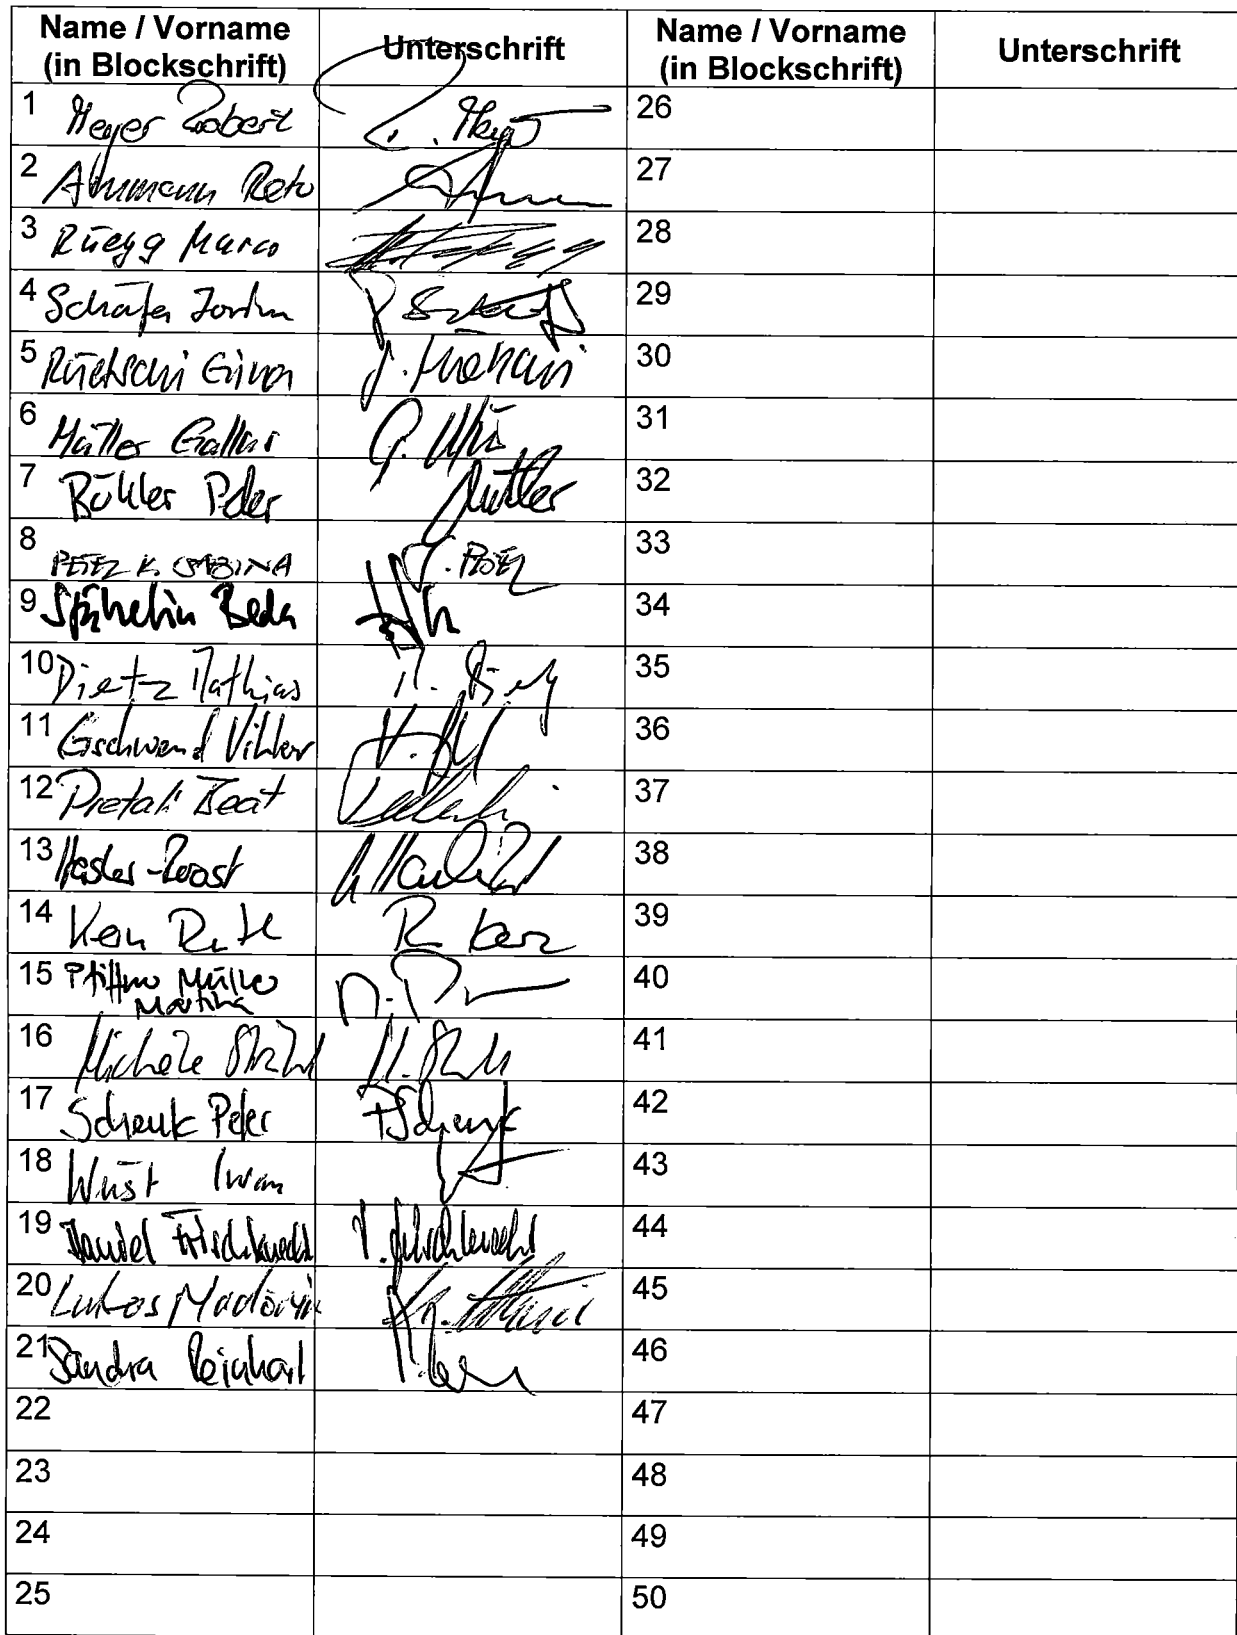 Name / Vorname
(in Blockschrift)
Unterschrift
Name / Vorname
(in Blockschrift)
Unterschrift
1 Meyer Robert R. Meyer 26
2 Ammann Reto 27
3 Rüegg Marco 28
4 Schäfer 29
5 Rüetschi 30
6 Müller Gallus 31
7 Bühler Peter Bühler 32
8 PETER K. SABINA S. PETER 33
9 Stähelin Beda 34
10 Dietz Mathias 35
11 Gschwend Viktor 36
12 Pretali Beat 37
13 38
14 Kern Reto R Kern 39
15 Pfiffner Müller
Martina
40
16 Michele M. 41
17 Schenk Peter P Schenk 42
18 Wüst Iwan 43
19 Daniel Frischknecht D. Frischknecht 44
20 Lukas Madörin 45
21 Sandra Reinhart 46
22 47
23 48
24 49
25 50